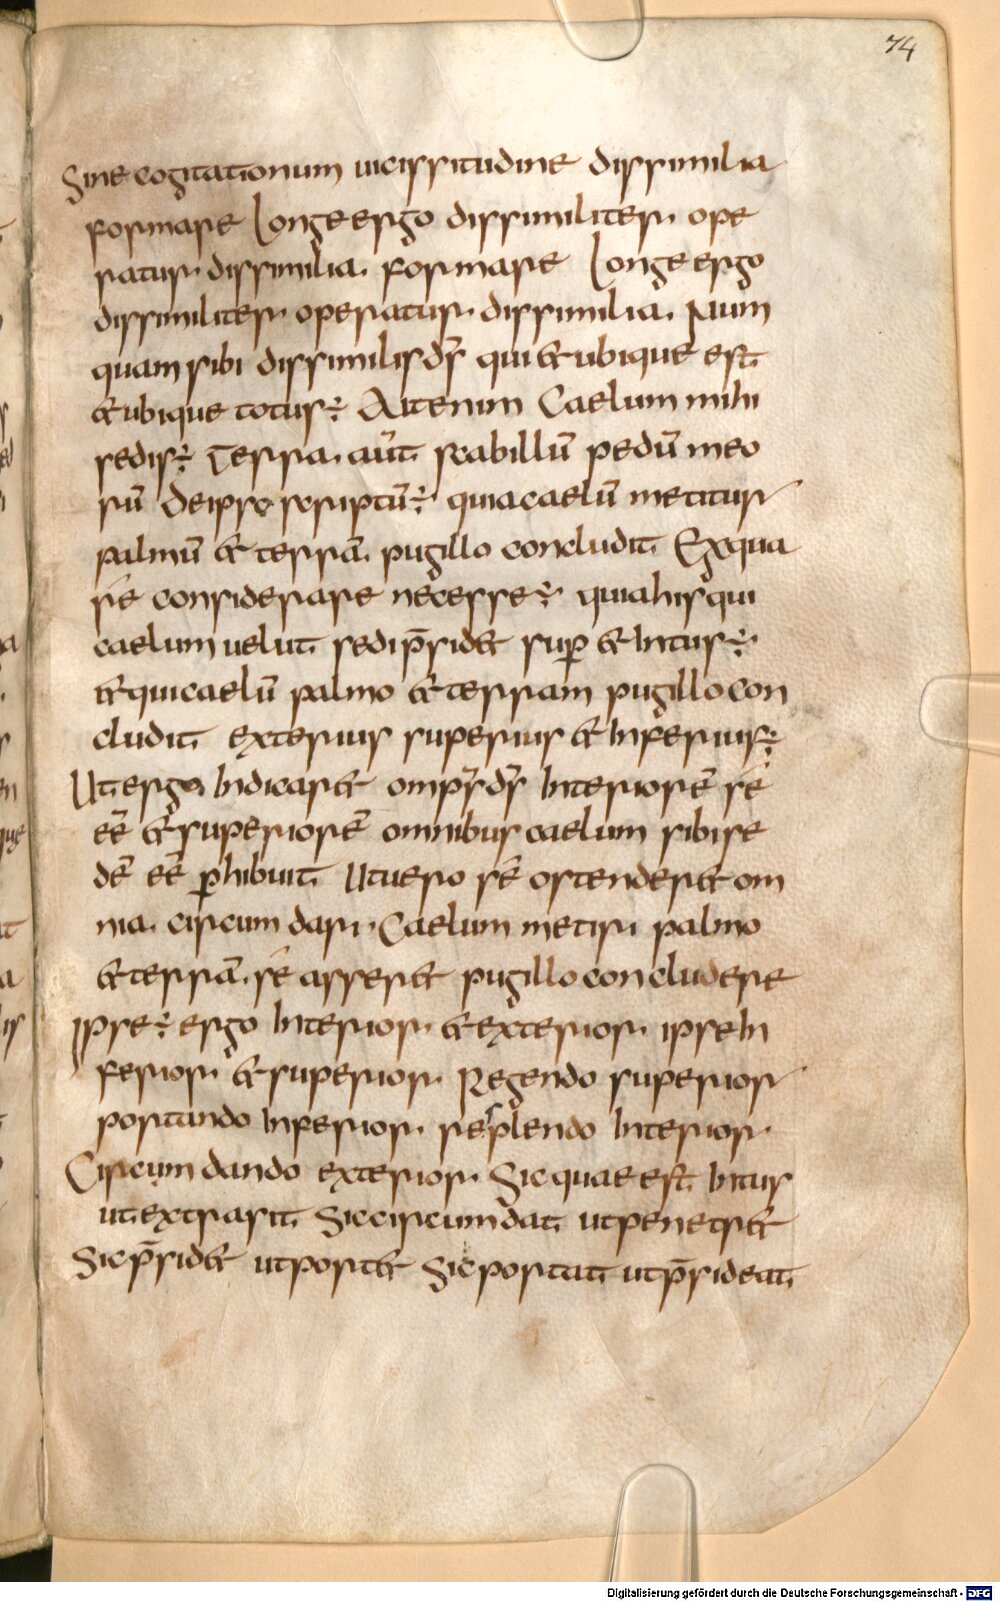 74
Sine cogitationum uicissitudine dissimilia
formare Longe ergo dissimiliter ope
ratur dissimilia. formare Longe ergo
dissimiliter operatur dissimilia. Num
quam sibi dissimilis d̄s qui & ubique est
& ubique totus÷ Ait enim Caelum mihi
sedis÷ Terra. aūt scabillū pedū meo
rū De ipso scriptū÷ quia caelū metitur
palmū & terrā pugillo concludit Ex qua
re considerare necesse÷ quia his qui
caelum uelut sedi p̄sid& sup & Intus÷
& qui caelū palmo & terram pugillo con
cludit exterius superius & Inferius÷
Ut ergo Indicar& omp̄s d̄s Interiorē sē
eē & superiorē omnibus caelum sibi se
dē eē phibuit Ut uero sē ostender& om
nia. circumdari. Caelum metiri palmo
& terrā. sē asser& pugillo concludere
Ipse÷ ergo Interior. & exterior. ipse In
ferior. & superior. Regendo superior
portando Inferior. resplendo Interior.
Circumdando exterior. Sicquae est Intus
ut extra sit Sic circumdat ut penetr&
Sic p̄sid& ut port& Sic portat ut p̄sideat
Digitalisierung gefördert durch die Deutsche Forschungsgemeinschaft - DFG